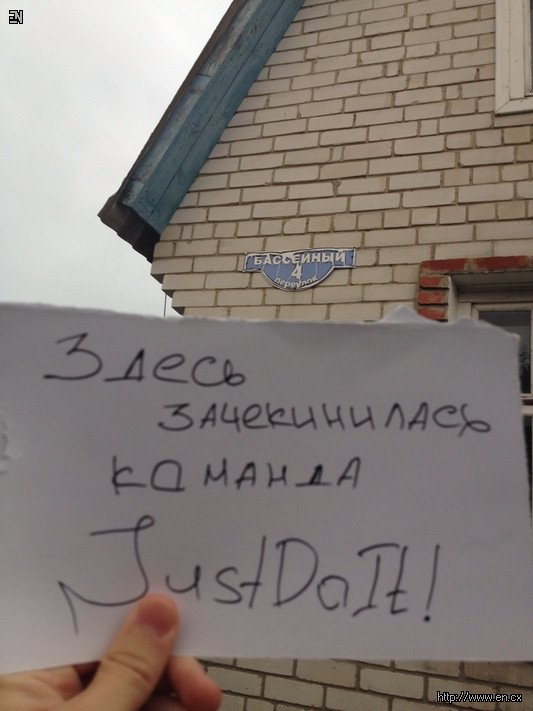 EN
БАССЕЙНЫЙ
4
переулок
Здесь
зачекинилась
команда
JustDoIt!
http://www.en.cx